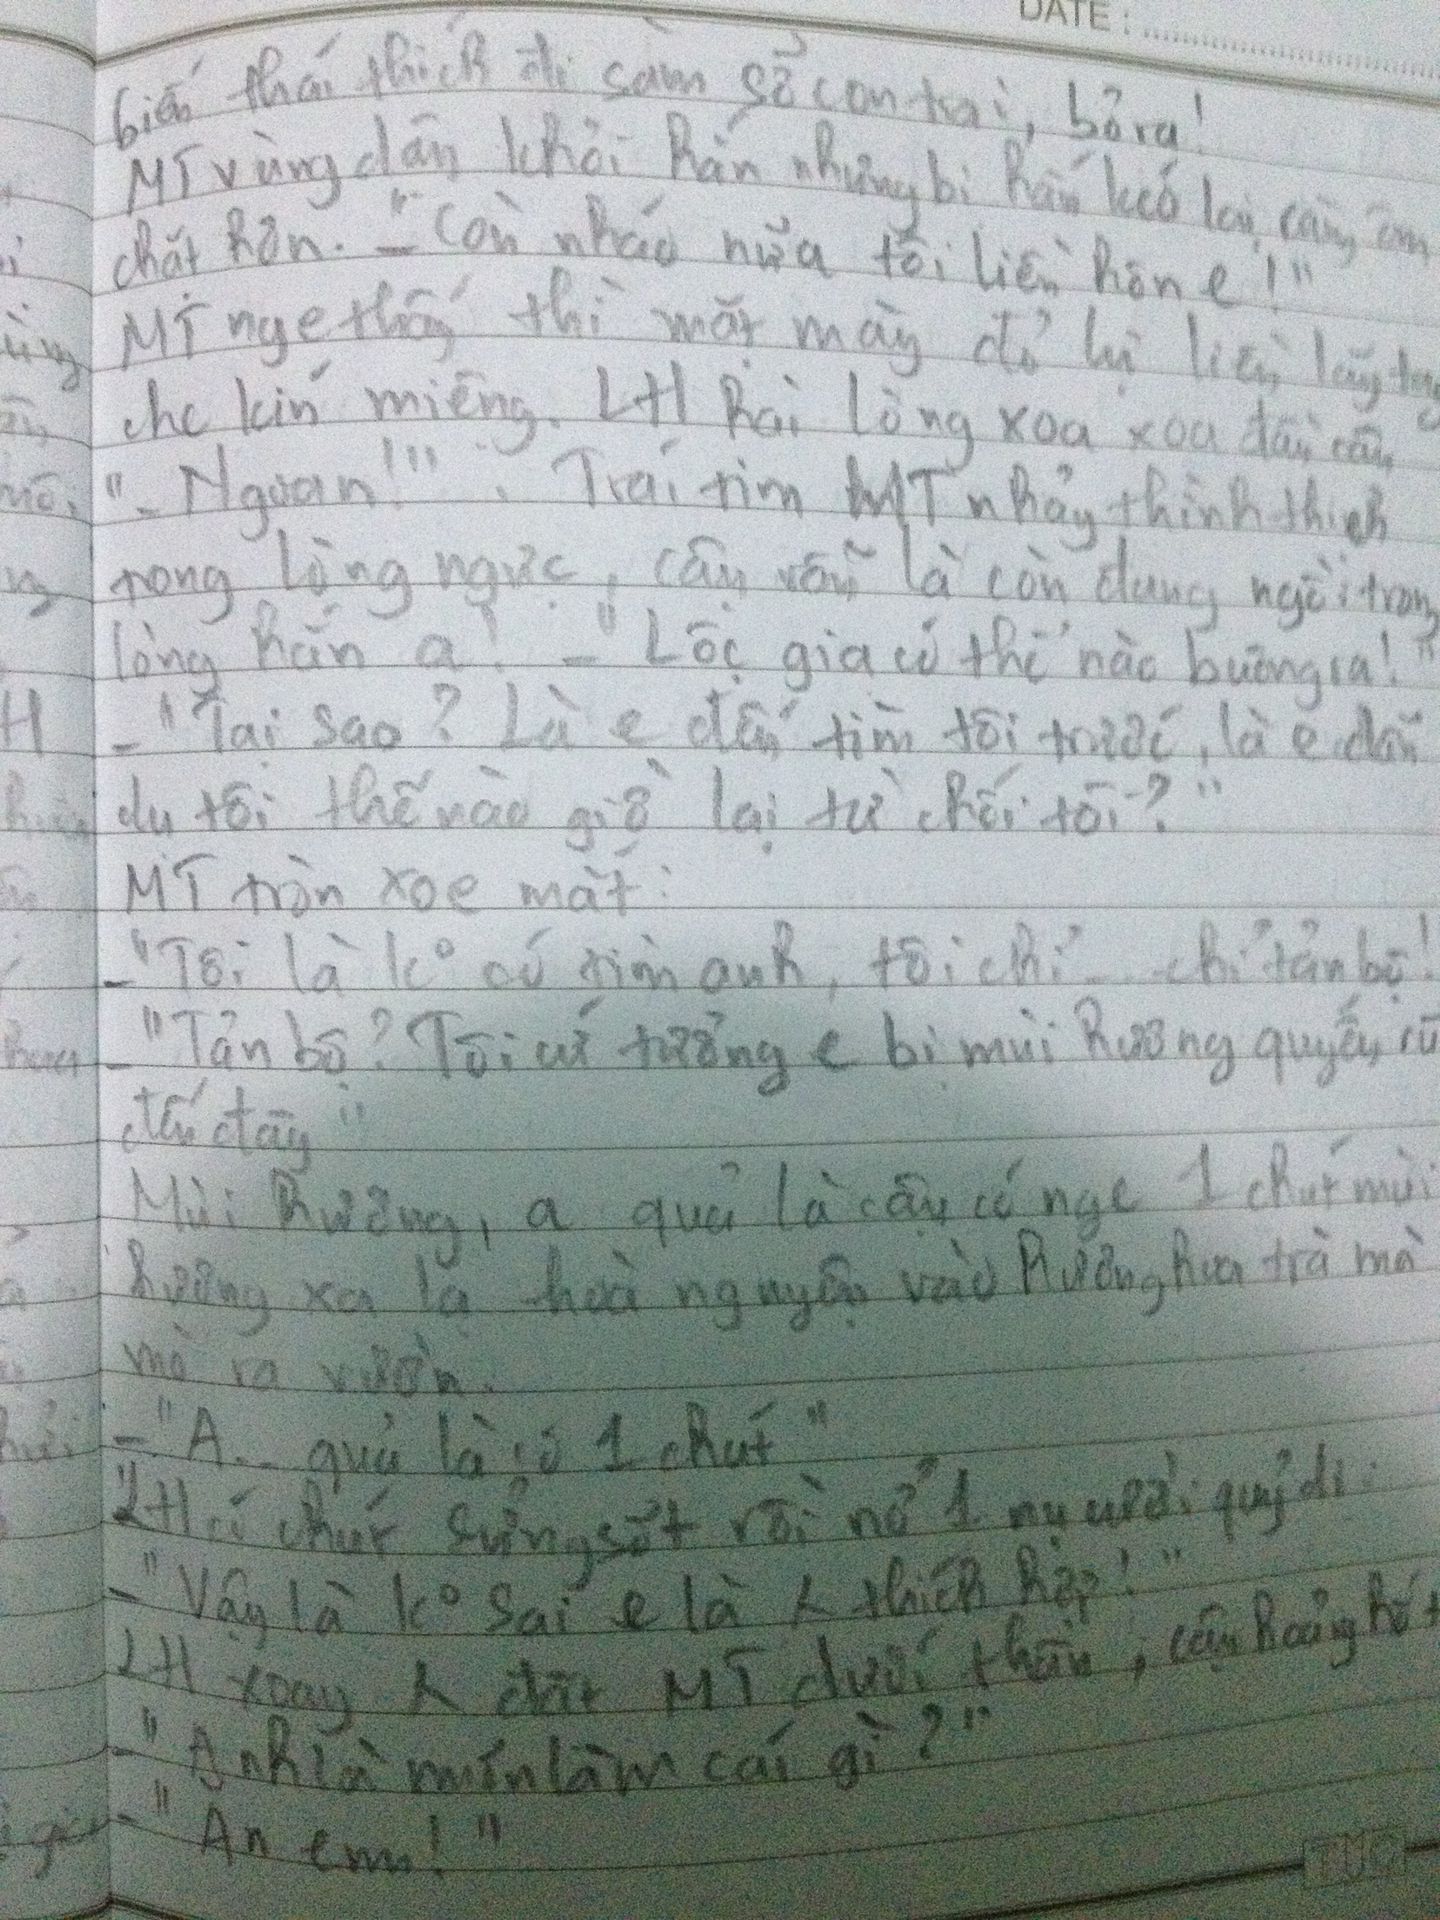 DATE :
biến thái thích đi sàm sỡ con trai, bỏ ra!
MT vùng dần khỏi hắn nhưng bị hắn kéo lại, càng ôm
chặt hơn. - "Còn nháo nữa tôi liền hôn e!"
MT nge thấy thì mặt mày đỏ lự liền lấy tay
che kín miệng. LH hài lòng xoa xoa đầu cậu,
"- Ngoan!". Trái tim MT nhảy thình thịch
rong lồng ngực, cậu vẫn là còn đang ngồi trong
lòng hắn a! - "Lộc gia có thể nào buông ra!"
- "Tại sao? Là e đến tìm tôi trước, là e dẫn
dụ tôi thế nào giờ lại từ chối tôi?"
MT tròn xoe mắt:
- "Tôi là ko có tìm anh, tôi chỉ... chỉ tản bộ!
- "Tản bộ? Tôi cứ tưởng e bị mùi hương quyến rũ
đến đây"
Mùi hương, a quả là cậu có nge 1 chút mùi
hương xa lạ hoà nguyện vào hương hoa trà mà
mò ra vườn.
- "A... quả là có 1 chút"
LH có chút sửng sốt rồi nở 1 nụ cười quỷ dị:
- "Vậy là ko sai e là thích hợp!"
LH xoay đặt MT dưới thân, cậu hoảng hốt
- "Anh là mún làm cái gì?"
- "Ăn em!"